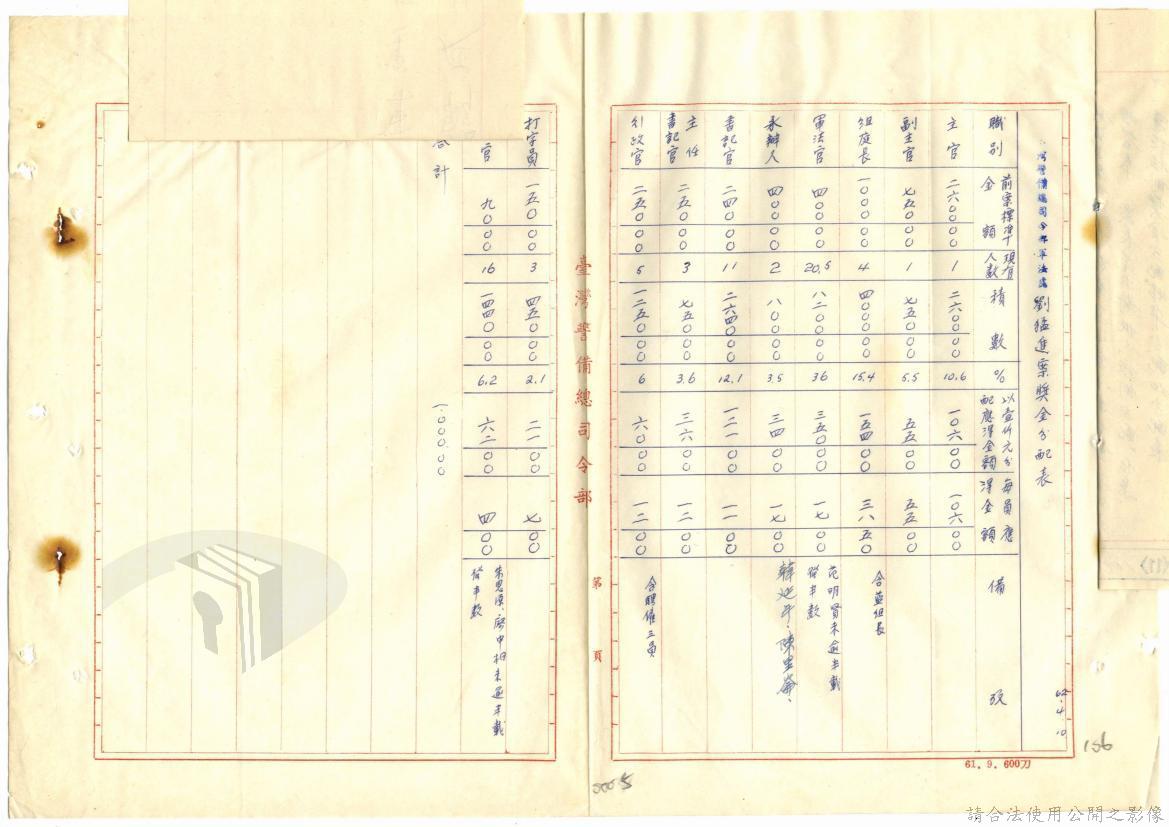 灣警備總司令部軍法處 劉猛進案獎金分配表
62.4.10
職別 前案標準金額 現有人數 積數 % 以壹仟元分配應得金額 每員應得金額 備攷
主官 二六〇〇〇〇 1 二六〇〇〇〇 10.6 一〇六〇〇 一〇六〇〇
副主官 七五〇〇〇 1 七五〇〇〇 5.5 五五〇〇 五五〇〇
組庭長 一〇〇〇〇〇 4 四〇〇〇〇〇 15.4 一五四〇〇 三八五〇 含藍組長
軍法官 四〇〇〇〇 20.5 八二〇〇〇〇 36 三五〇〇〇 一七〇〇 范明賢未逾半載發半數
承辦人 四〇〇〇〇 2 八〇〇〇〇 3.5 三四〇〇 一七〇〇 韓延年、陳
書記官 二四〇〇〇 11 二六四〇〇〇 12.1 一二一〇〇 一一〇〇
主任書記官 二五〇〇〇 3 七五〇〇〇 3.6 三六〇〇 一二〇〇
行政官 二五〇〇〇 5 一二五〇〇〇 6 六〇〇〇 一二〇〇 含聘僱三員
臺灣警備總司令部
第 頁
打字員 一五〇〇〇 3 四五〇〇〇 2.1 二一〇〇 七〇〇
官 九〇〇〇 16 一四四〇〇〇 6.2 六二〇〇 四〇〇 未逾半載發半數
合計 一〇〇〇〇〇
61.9.600刀
156
請合法使用公開之影像